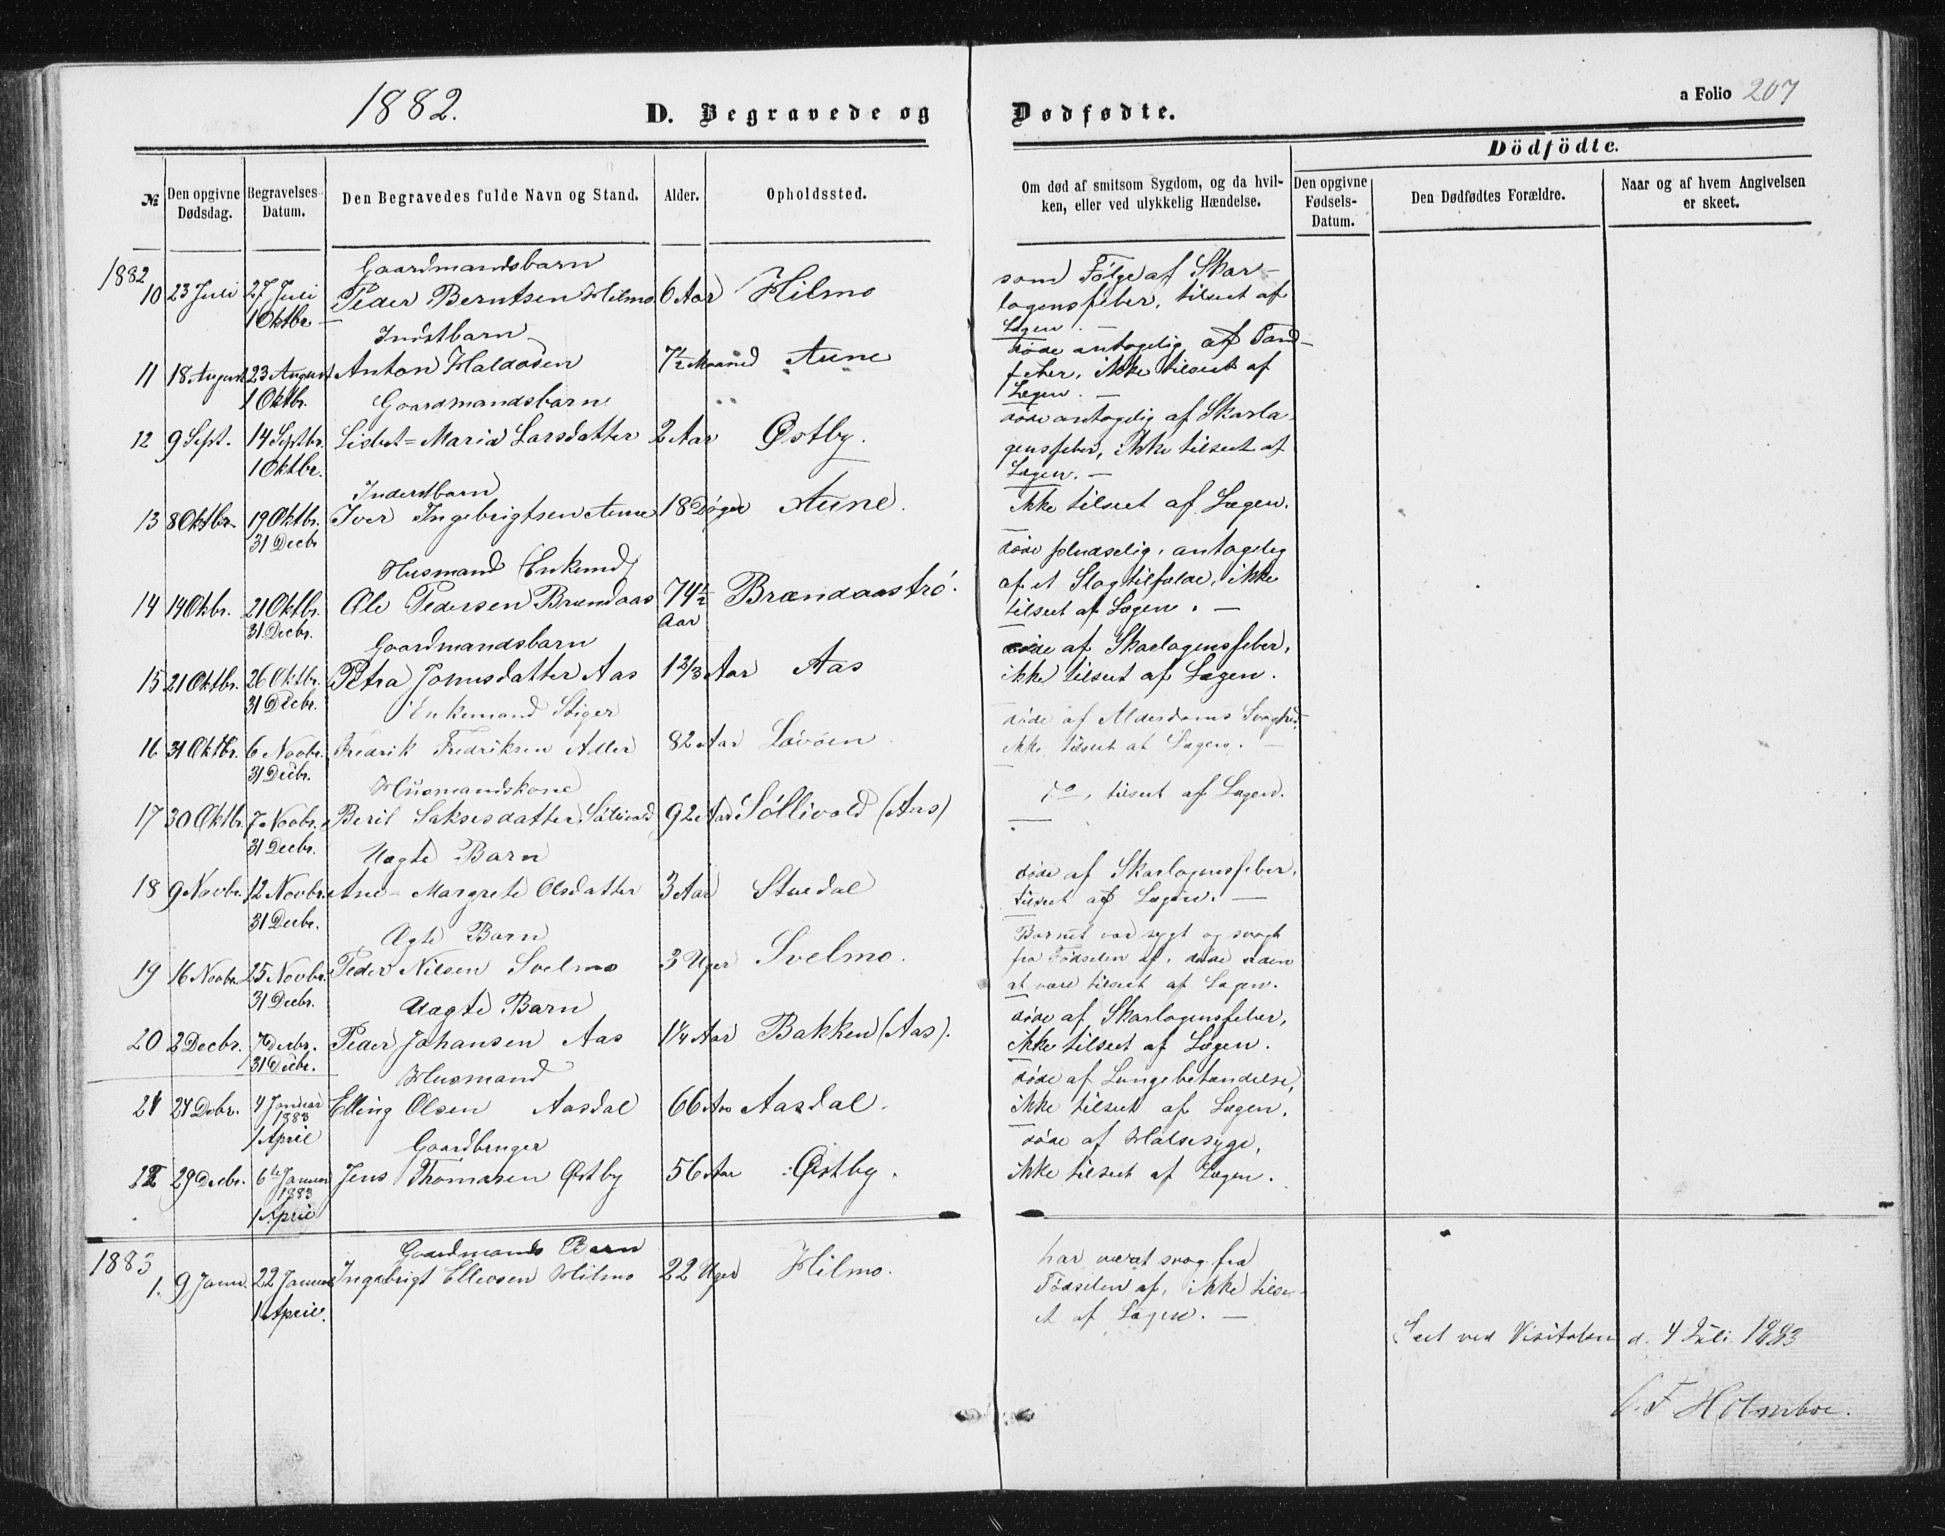 1882. D. Begravede og Dødfødte. a Folio 207
Dödfödte.
№ Den opgivne Dødsdag. Begravelses-Datum. Den Begravedes fulde Navn og Stand. Alder. Opholdssted. Om død af smitsom Sygdom, og da hvil-ken, eller ved ulykkelig Hændelse. Den opgivne Fødsels-Datum. Den Dødfødtes Forældre. Naar og af hvem Angivelsen er skeet.
1882 Gaardmandsbarn som Følge af Skar-
10 23 Juli 27 Juli Peder Berntsen Hilmo 6 Aar Hilmo lagensfeber, tilseet af
1 Oktbr. Lægen. —
Indstbarn døde antagelig af Tand-
11 18 August 23 August Anton Haldosen 7½ Maaned Aune feber, ikke tilseet af
1 Oktbr. Gaardmandsbarn Lægen. —
døde antagelig af Skarla-
12 9 Sept. 14 Septbr. Lisbet=Maria Larsdatter 2 Aar Østby. gensfeber, ikke tilseet af
1 Oktbr. Lægen. —
Inderstbarn
13 8 Oktbr. 19 Oktbr. Iver Ingebrigtsen Aune 18 Døger Aune. Ikke tilseet af Lægen.
31 Decb.
Husmand (Enkemd) døde pludselig, antagelig
af et Slagtilfælde, ikke
14 14 Okbr. 21 Oktbr. Ole Pedersen Brændaas 74½ Aar Brændaastrø. tilseet af Lægen. —
31 Decbr.
Gaardmandsbarn døde af Skarlagensfeber,
15 21 Oktbr. 26 Oktbr. Petra Jonusdatter Aas 1 2/3 Aar Aas ikke tilseet af Lægen.
31 Decbr.
Enkemand Stiger døde af Alderdoms Svaghed
16 31 Oktbr. 6 Novbr. Fredrik Fredriksen Adler 82 Aar Løvøen ikke tilseet af Lægen. —
31 Decbr.
Husmandskone do, tilseet af Lægen.
17 30 Oktbr. 7 Novbr. Berit Saksesdatter Søllivold 92 Aar Søllivold (Aas)
31 Decbr.
Uægte Barn døde af Skarlagensfeber,
18 9 Novbr. 12 Novbr. Ane- Margrete Olsdatter 3 Aar Stuedal tilseet af Lægen. —
31 Decbr.
Ægte Barn Barnet var sygt og svagt
19 16 Novbr. 25 Novbr. Peder Nilsen Svelmo 3 Uger Svelmo. fra Fødselen af, døde uden
31 Decbr. at være tilseet af Lægen.
Uægte Barn døde af Skarlagensfeber,
20 2 Decbr. 7 Decbr. Peder Johansen Aas 1¼ Aar Bakken (Aas). ikke tilseet af Lægen.
31 Decbr.
Husmand døde af Lungebetændelse,
21 24 Debr. 4 Januar 1883 Elling Olsen Aasdal 66 Aar Aasdal. ikke tilseet af Lægen.
1 April
Gaardbruger døde af Halssyge,
22 29 Decbr. 6te Januar 1883 Jens Thomasen Østby 56 Aar Østby. ikke tilseet af Lægen.
1 April
1883 Gaardmands Barn har været svag fra
1. 9 Janr. 22 Januar Ingebrigt Ellevsen Hilmo 22 Uger Hilmo. Fødselen af, ikke tilse-
1 April. et af Lægen. —
Seet ved Visitatsen d. 4 Juli 1883
C. F. Holmboe.